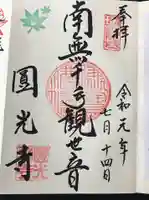 奉拝
令和元年
七月十四日
南無千手観世音
圓光寺